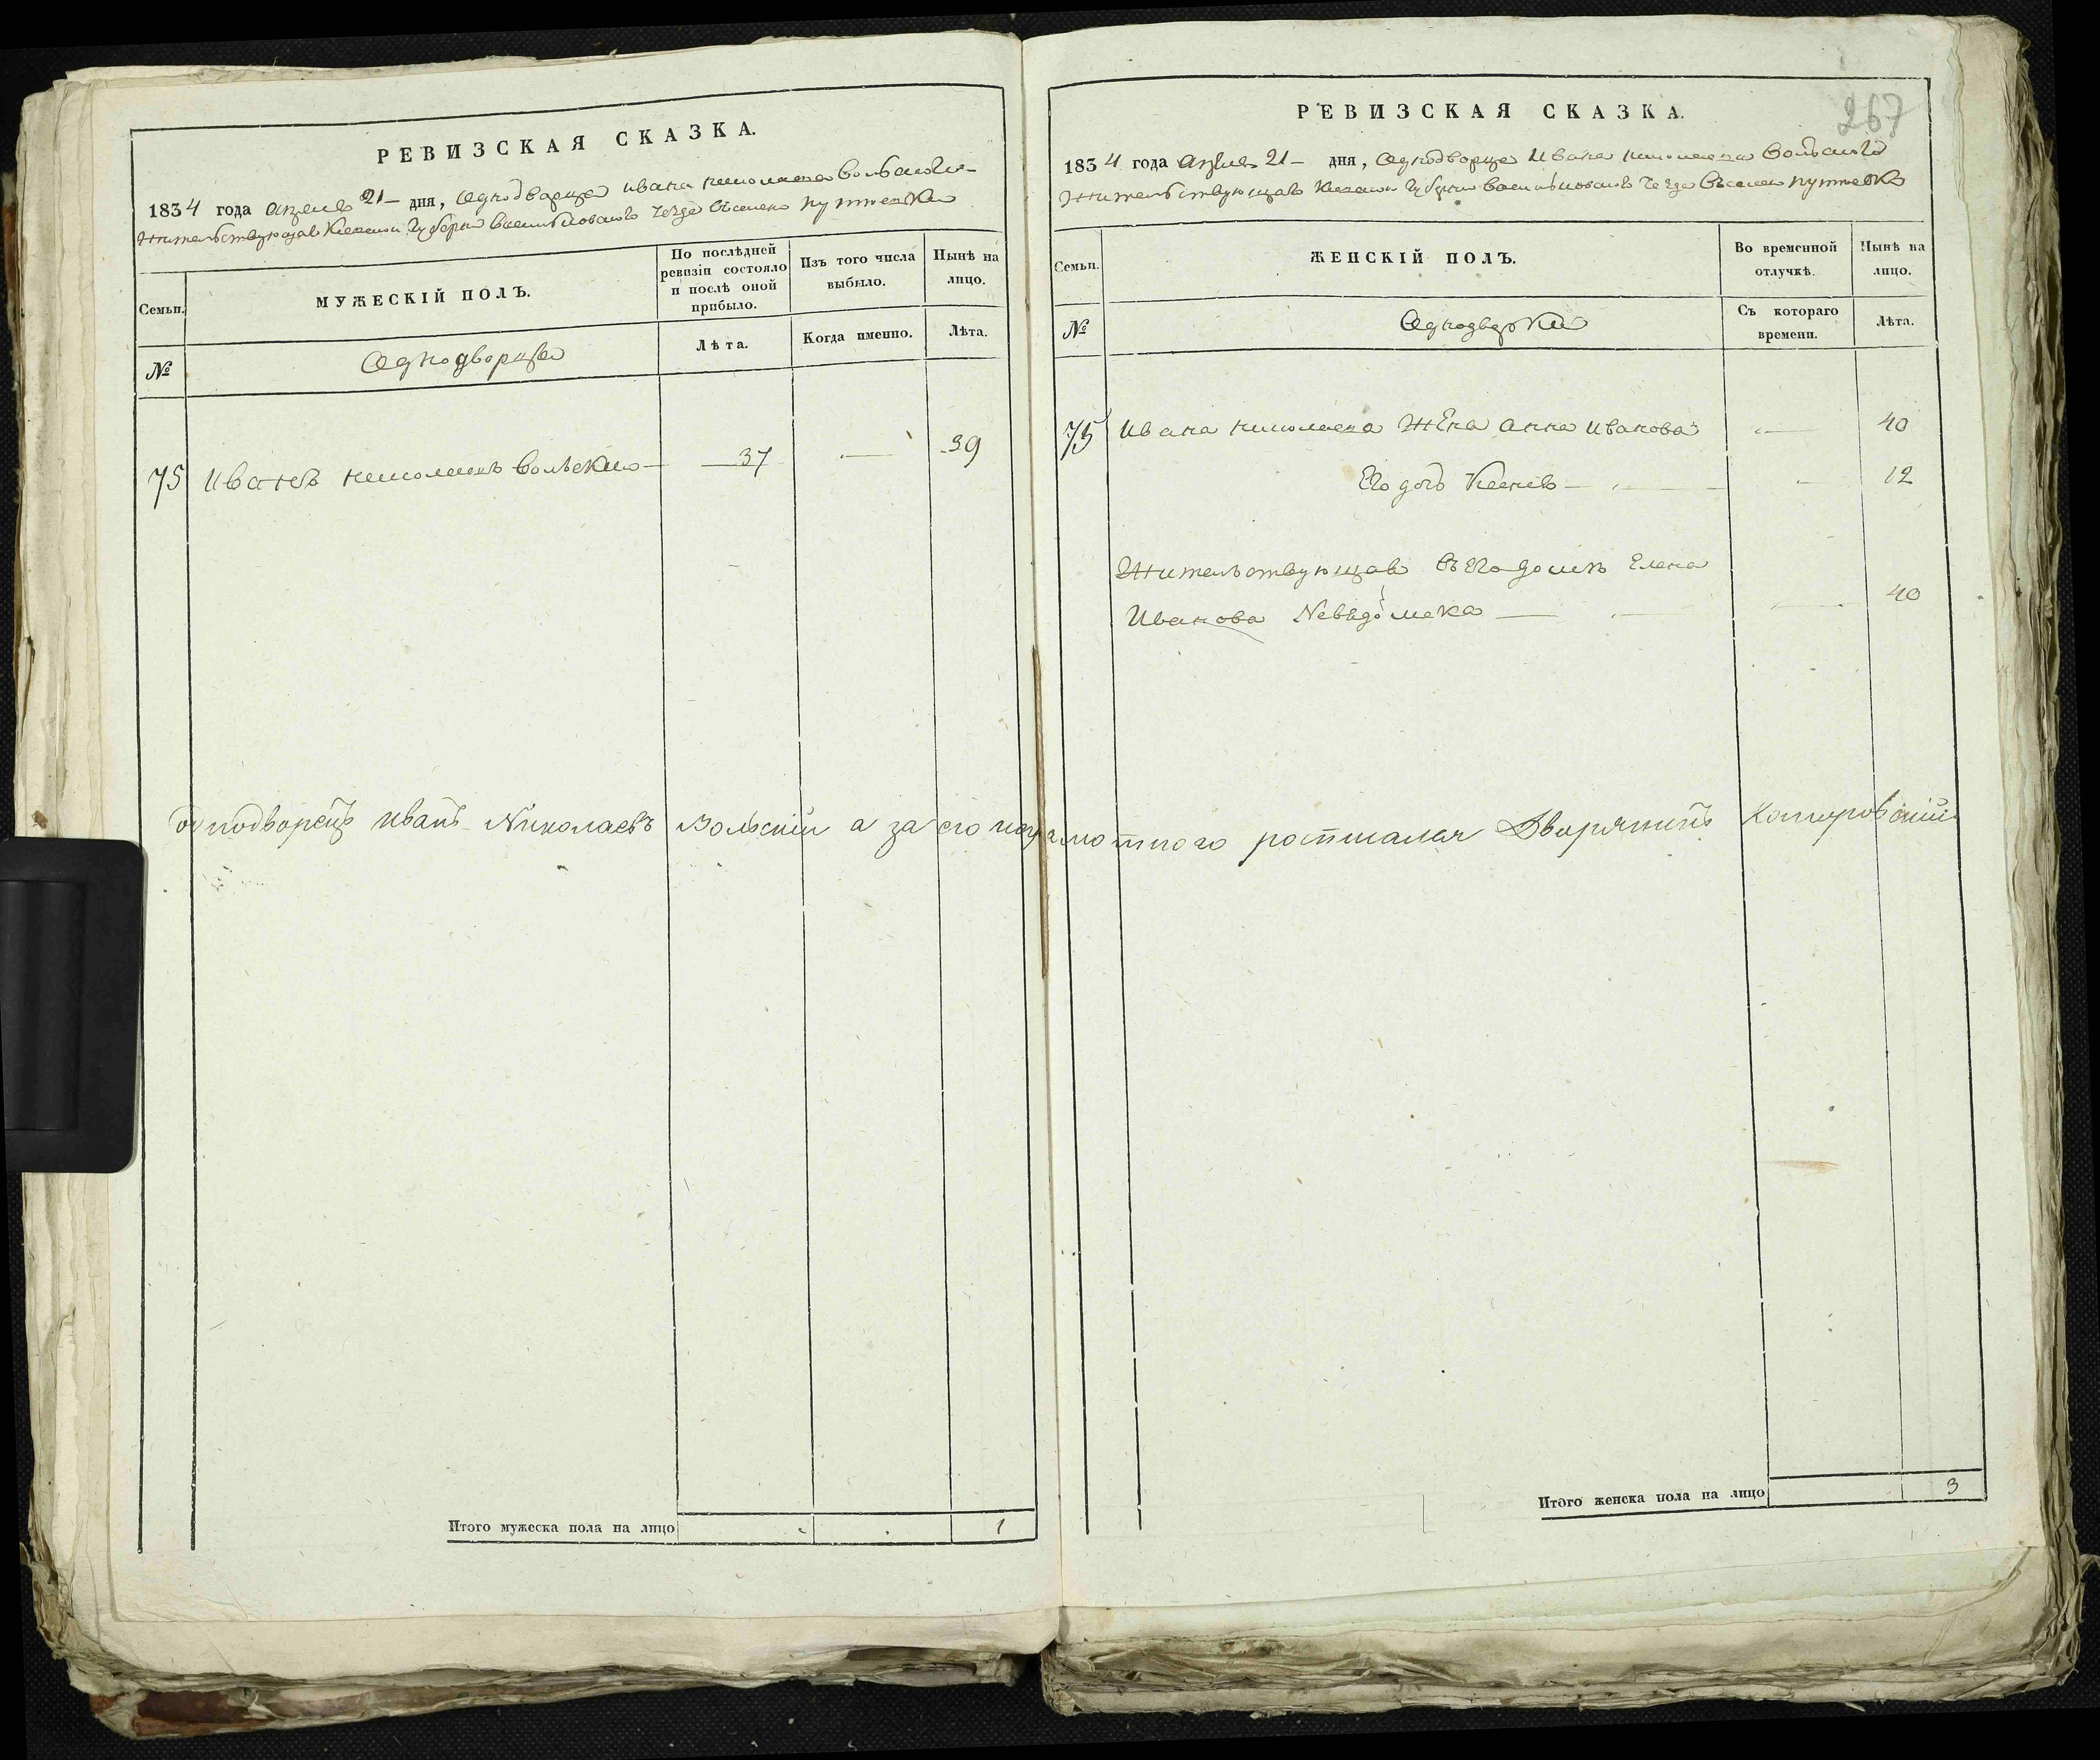 РЕВИЗСКАЯ СКАЗКА.
1834 года Апреля 21 – дня, Однодворца Ивана Николаева Вольского
Жительствующаго Киевской Губернии Васильковского уезда в селе
Семьи.
МУЖЕСКІЙ ПОЛЪ.
По послѣдней ревизіи состояло и послѣ оной прибыло.
Изъ того числа выбыло.
Нынѣ на лицо.
№
Однодворцы
Лѣта.
Когда именно.
Лѣта.
75 Иванъ Николаевъ Вольский — 37 — 39
Однодворецъ Иванъ Николаевъ Вольскій а за его неграмотного росписался Дворянинъ
Итого мужеска пола на лицо 1
267
РЕВИЗСКАЯ СКАЗКА.
1834 года Апреля 21 – дня, Однодворца Ивана Николаева Вольского
Жительствующаго Киевской Губернии Васильковского уезда в селе
Семьи.
ЖЕНСКІЙ ПОЛЪ.
Во временной отлучкѣ.
Нынѣ на лицо.
№
Однодворки
Съ котораго времени.
Лѣта.
75 Ивана Николаева Жена Анна Иванова — 40
Его дочь — 12
Жительствующая в его доме Елена
Иванова — 40
Итого женска пола на лицо 3